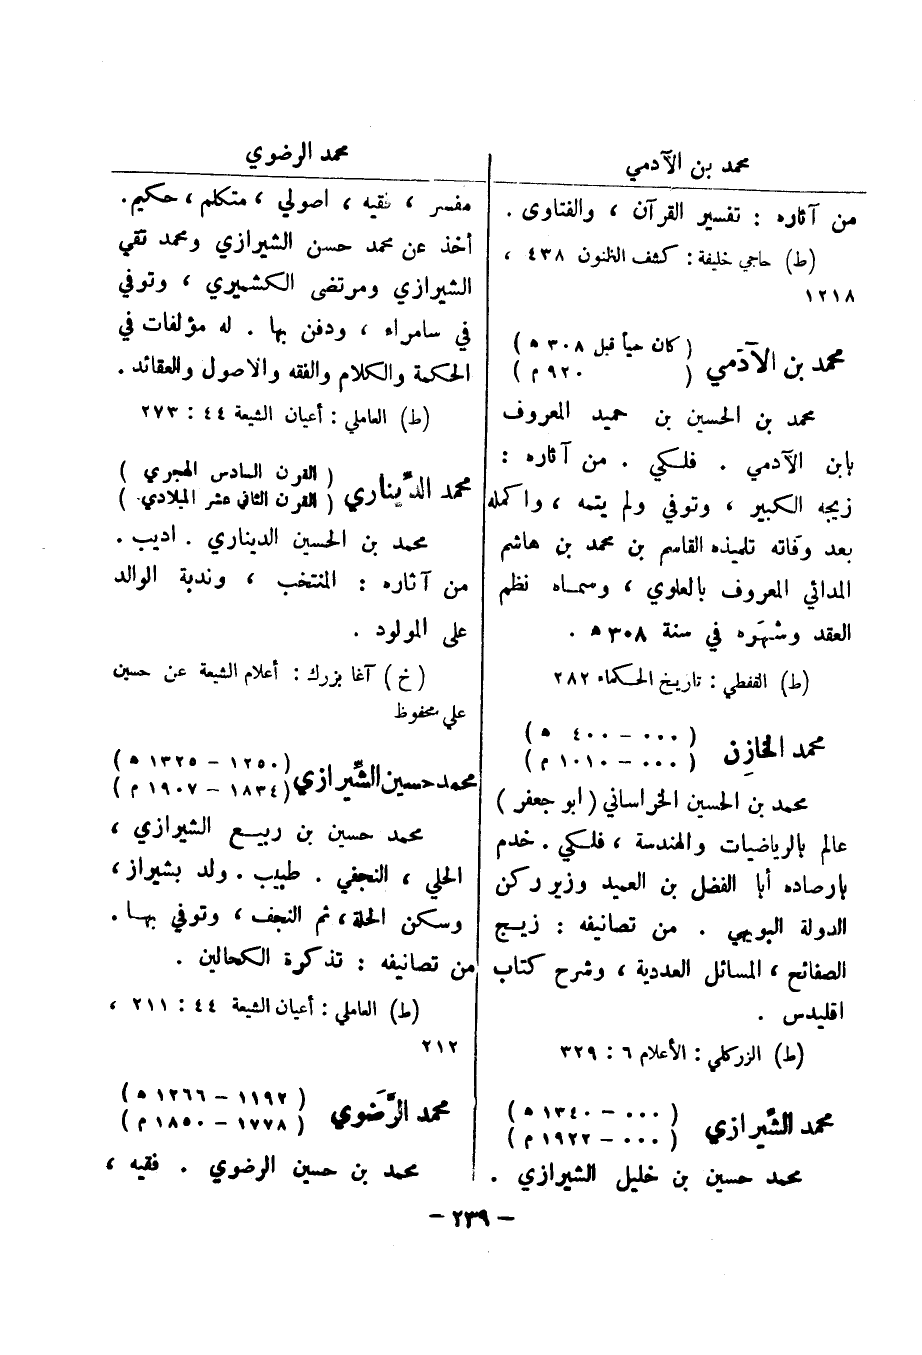 محمد بن الآدمي
من آثاره : تفسير القرآن ، والفتاوى .
(ط) حاجي خليفة : كشف الظنون ٤٣٨ ،
١٢١٨
محمد بن الآدمي ( كان حياً قبل ٣٠٨ ه )
( ٩٢٠ م )
محمد بن الحسين بن حميد المعروف
بابن الآدمي . فلكي . من آثاره :
زيجه الكبير ، وتوفي ولم يتمه ، واكمله
بعد وفاته تلميذه القاسم بن محمد بن هاشم
المدائي المعروف بالعلوي ، وسماه نظم
العقد وشهَره في سنة ٣٠٨ ه .
(ط) القفطي : تاريخ الحكماء ٢٨٢
محمد الخازِن ( ٠٠٠ – ٤٠٠ ه )
( ٠٠٠ – ١٠١٠ م )
محمد بن الحسين الخراساني ( ابو جعفر )
عالم بالرياضيات والهندسة ، فلكي . خدم
بارصاده أبا الفضل بن العميد وزير ركن
الدولة البويهي . من تصانيفه : زيج
الصفائح ، المسائل العددية ، وشرح كتاب
اقليدس .
(ط) الزركلي : الأعلام ٦ : ٣٢٩
محمد الشِّيرازي ( ٠٠٠ – ١٣٤٠ ه )
( ٠٠٠ – ١٩٢٢ م )
محمد حسين بن خليل الشيرازي .
محمد الرضوي
مفسر ، فقيه ، اصولي ، متكلم ، حكيم .
أخذ عن محمد حسن الشيرازي ومحمد تقي
الشيرازي ومرتضى الكشميري ، وتوفي
في سامراء ، ودفن بها . له مؤلفات في
الحكمة والكلام والفقه والاصول والعقائد .
(ط) العاملي : أعيان الشيعة ٤٤ : ٢٧٣
محمد الدِّيناري ( القرن السادس الهجري )
( القرن الثاني عشر الميلادي )
محمد بن الحسين الديناري . اديب .
من آثاره : المنتخب ، وندبة الوالد
على المولود .
(خ) آغا بزرك : أعلام الشيعة عن حسين
علي محفوظ
محمد حسين الشِّيرازي ( ١٢٥٠ – ١٣٢٥ ه )
( ١٨٣٤ – ١٩٠٧ م )
محمد حسين بن ربيع الشيرازي ،
الحلي ، النجفي . طبيب . ولد بشيراز ،
وسكن الحلة ، ثم النجف ، وتوفي بها .
من تصانيفه : تذكرة الكحالين .
(ط) العاملي : أعيان الشيعة ٤٤ : ٢١١ ،
٢١٢
محمد الرَّضَوي ( ١١٩٢ – ١٢٦٦ ه )
( ١٧٧٨ – ١٨٥٠ م )
محمد بن حسين الرضوي . فقيه ،
– ٢٣٩ –